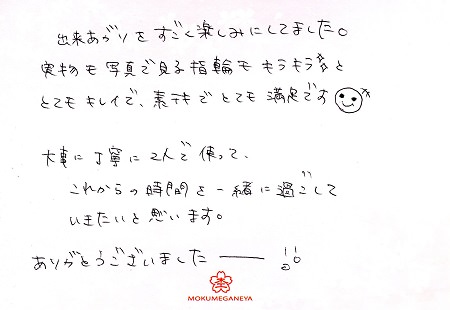 出来あがりをすごく楽しみにしてました。
実物も写真で見る指輪もキラキラと
とてもキレイで、素テキでとても満足です
大事に丁寧に2人で使って、
これからの時間を一緒に過ごして
いきたいと思います。
ありがとうございましたー!!
MOKUMEGANEYA